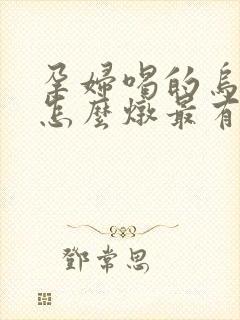 孕婦喝的烏
怎麼燉最有
鄧常思